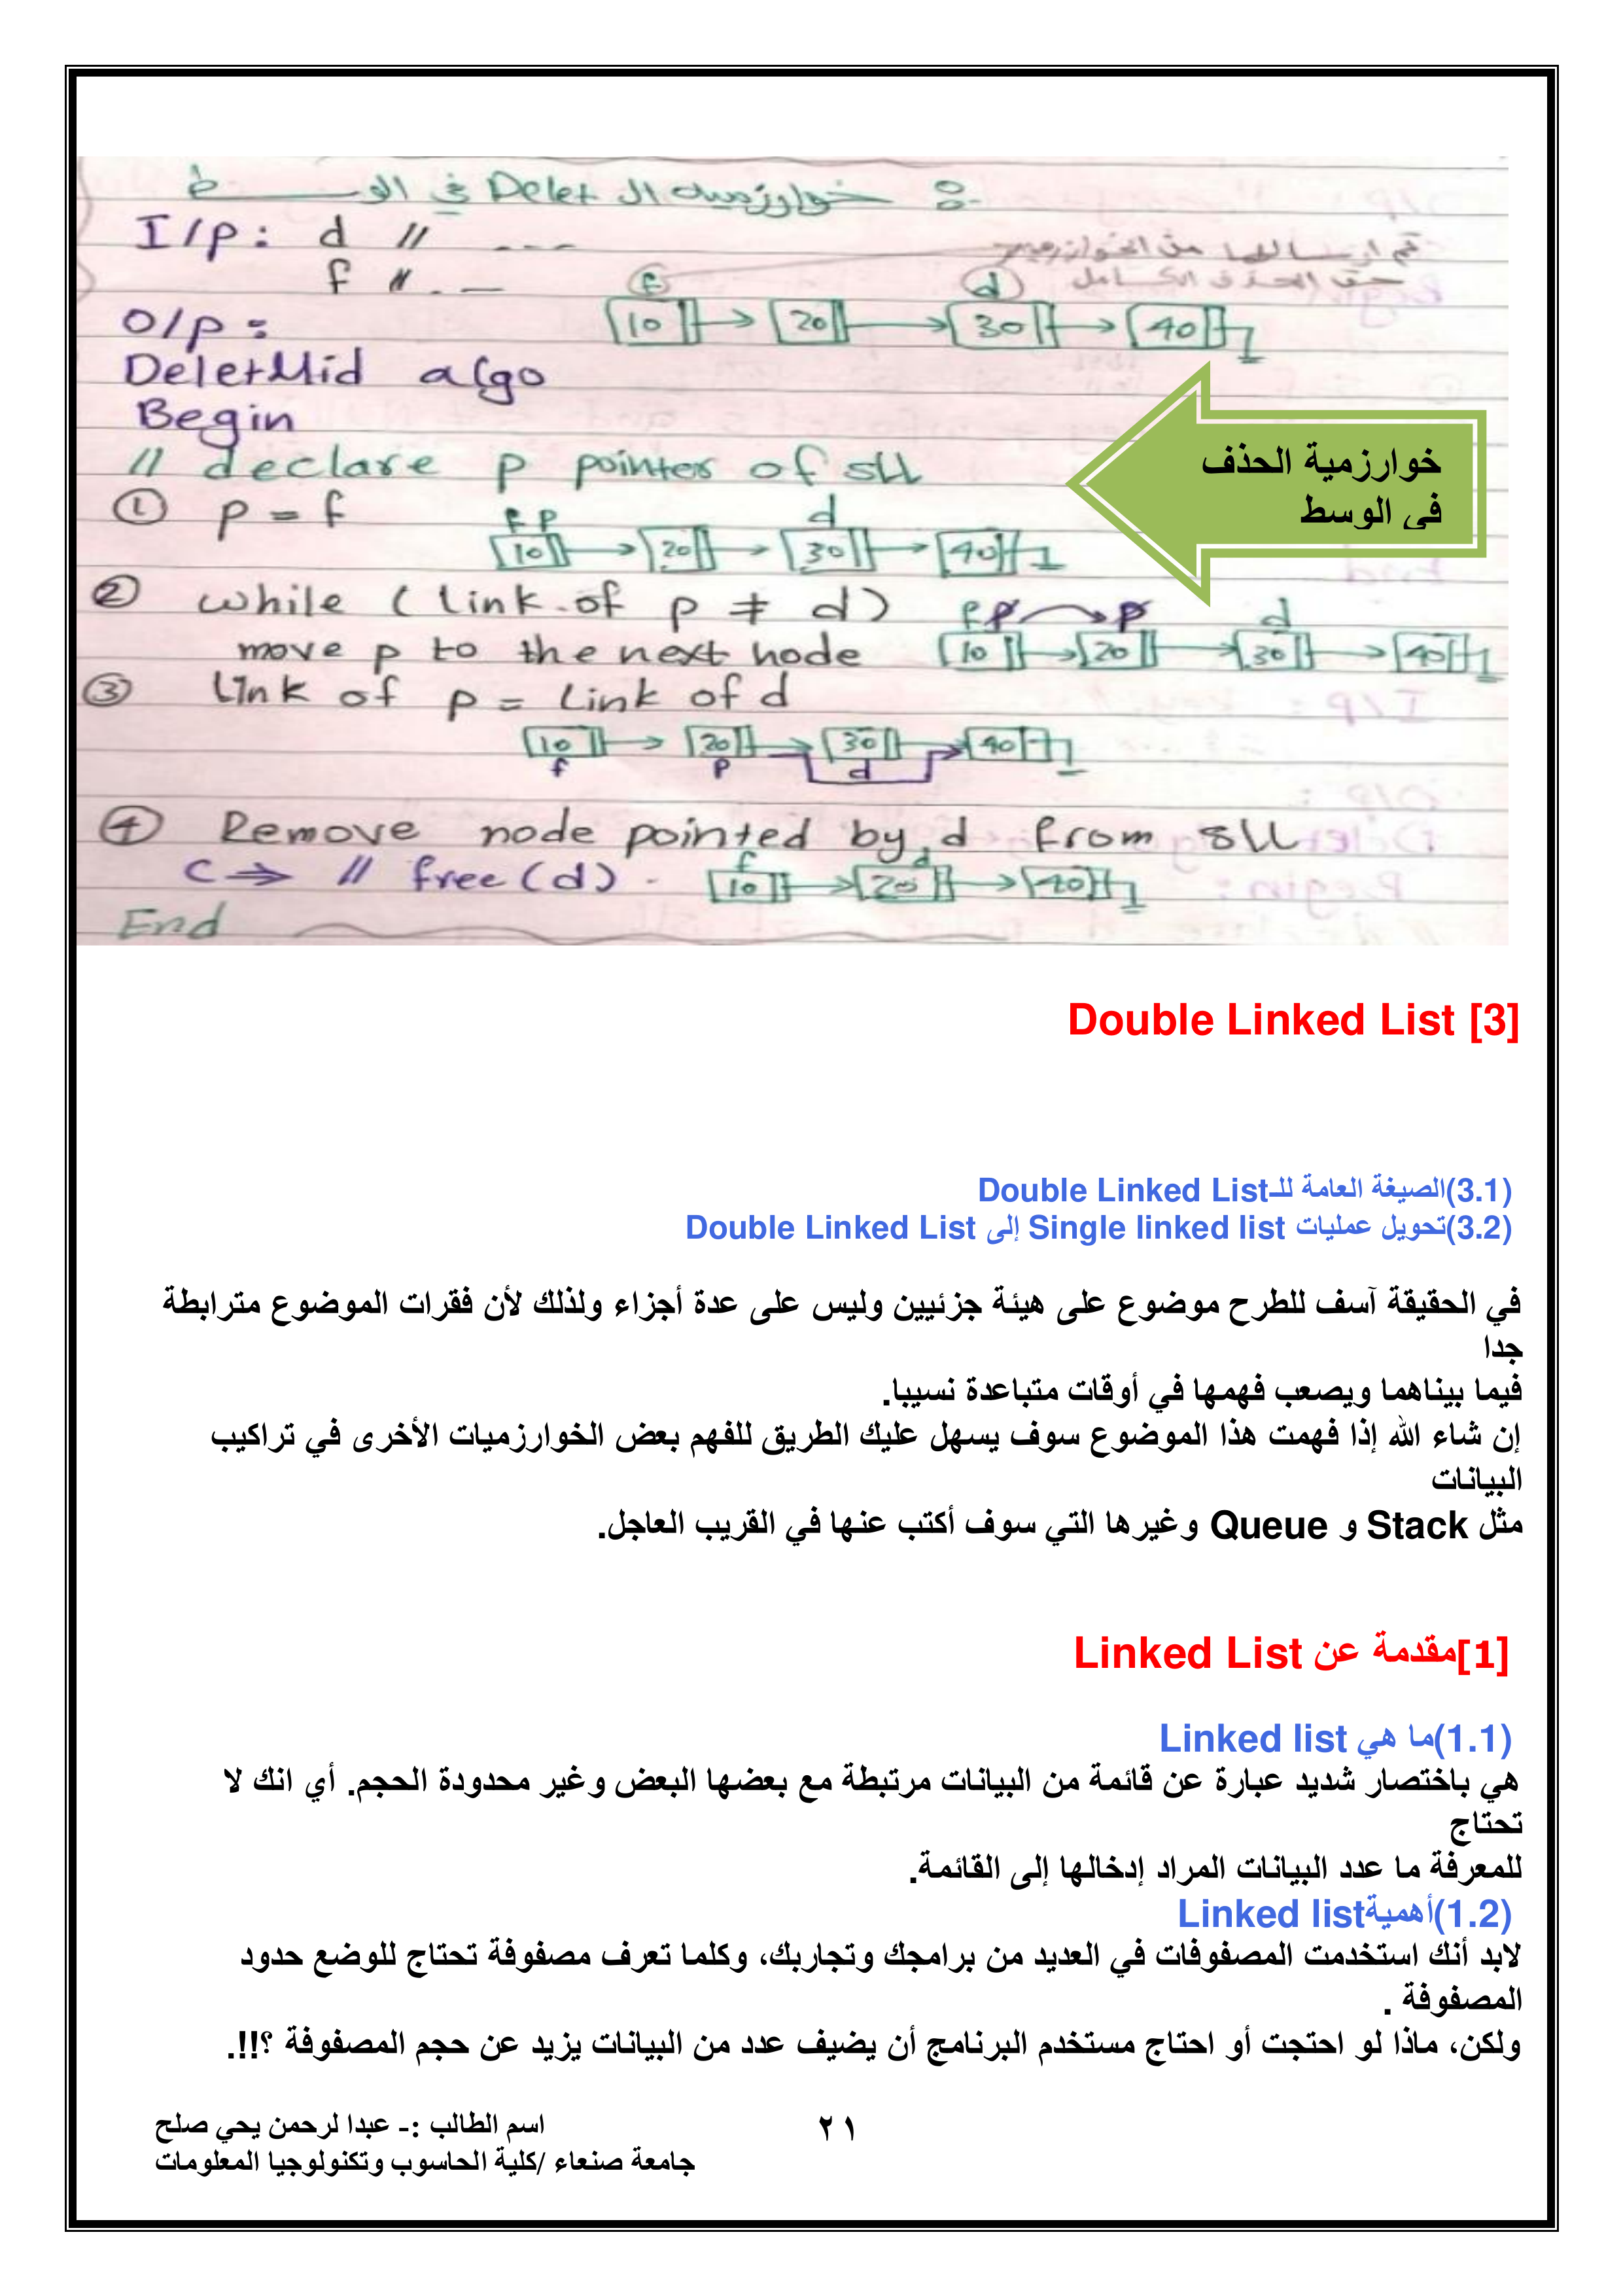 خوارزميه ال Delet في الوسط :-
I/p: d // ---
f // . --
تم ارسالها من الخوارزميه
حق الحذف الكامل
f d
O/p :
10 20 30 40
DeletMid algo
Begin
// declare p pointer of sll
خوارزمية الحذف
في الوسط
① p = f
f p d
10 20 30 40
② while ( link of p ≠ d )
f p p d
move p to the next node
10 20 30 40
③ link of p = link of d
10 20 30 40
f p d
④ Remove node pointed by d from sll
C → // free(d) .
f d
10 20 40
End
Double Linked List [3]
(3.1)الصيغة العامة للـDouble Linked List
(3.2)تحويل عمليات Single linked list إلى Double Linked List
في الحقيقة آسف للطرح موضوع على هيئة جزئيين وليس على عدة أجزاء ولذلك لأن فقرات الموضوع مترابطة
جدا
فيما بيناهما ويصعب فهمها في أوقات متباعدة نسيبا.
إن شاء الله إذا فهمت هذا الموضوع سوف يسهل عليك الطريق للفهم بعض الخوارزميات الأخرى في تراكيب
البيانات
مثل Stack و Queue وغيرها التي سوف أكتب عنها في القريب العاجل.
[1]مقدمة عن Linked List
(1.1)ما هي Linked list
هي باختصار شديد عبارة عن قائمة من البيانات مرتبطة مع بعضها البعض وغير محدودة الحجم. أي انك لا
تحتاج
للمعرفة ما عدد البيانات المراد إدخالها إلى القائمة.
(1.2)أهميةLinked list
لابد أنك استخدمت المصفوفات في العديد من برامجك وتجاربك، وكلما تعرف مصفوفة تحتاج للوضع حدود
المصفوفة .
ولكن، ماذا لو احتجت أو احتاج مستخدم البرنامج أن يضيف عدد من البيانات يزيد عن حجم المصفوفة ؟!!.
اسم الطالب :- عبدا لرحمن يحي صلح
٢١
جامعة صنعاء /كلية الحاسوب وتكنولوجيا المعلومات